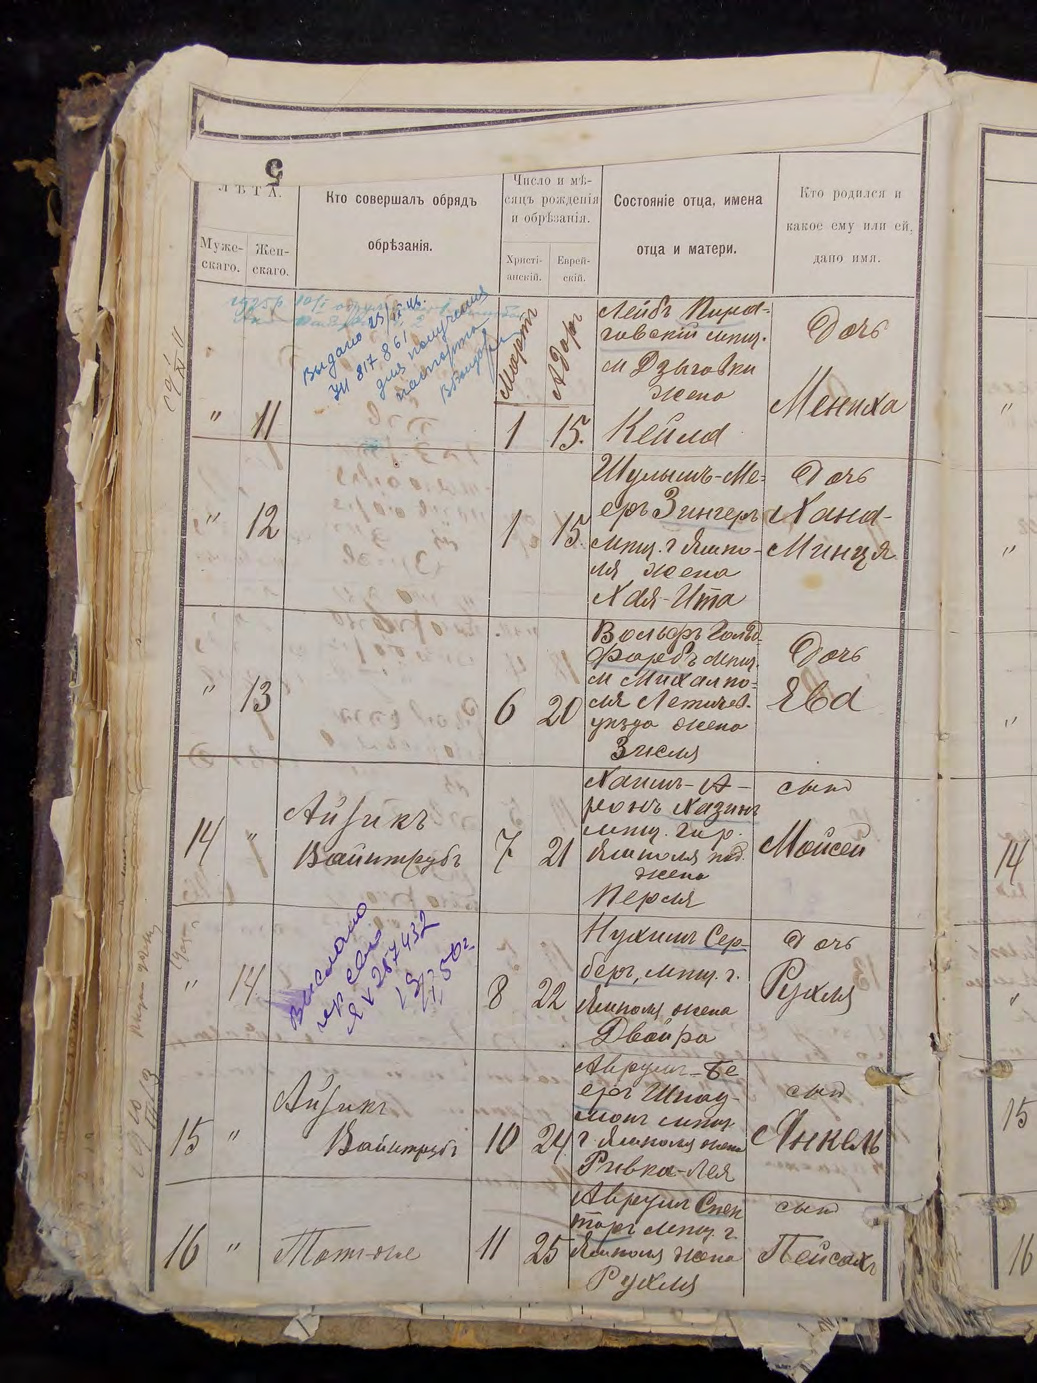 5
ЛѢТА.
Муже-
скаго.
Жен-
скаго.
Кто совершалъ обрядъ
обрѣзанія.
Число и мѣ-
сяцъ рожденія
и обрѣзанія.
Христі-
анскій.
Еврей-
скій.
Состояніе отца, имена
отца и матери.
Кто родился и
какое ему или ей,
дано имя.
Выдано 25/
817861
для получения
паспорта
Мартъ
Адоръ
" 11
1 15.
Лейбъ
мѣщ.
м Дзыговки
жена
Кейла
Дочь
Мениха
" 12
1 15
Шулымъ-Ме-
еръ Зингеръ
мѣщ. г Ямпо-
ля жена
Хая-Ита
Дочь
Хана-
Минця
" 13
6 20
Вольфъ Гольд
фарбъ мѣщ.
м Михалпо-
ля Летичев.
уѣзда жена
Зисля
Дочь
Ева
14 "
Айзикъ
Вайнтрубъ
7 21
Хаимъ-А-
ронъ Хазинъ
мѣщ. гор.
Ямполя под.
жена
Перля
сынъ
Мойсей
" 14
Выслано
287432
50г
8 22
Нухимъ Сер-
беръ, мѣщ. г.
Ямполя жена
Двойра
Дочь
Рухля
15 "
Айзикъ
Вайнтрубъ
10 24
Аврумъ-Бе
еръ
мѣщ
г Ямполя жена
Ривка-Лея
сынъ
Янкель
16 "
Тотъ же
11 25
Аврумъ Спек
торъ мѣщ. г.
Ямполя жена
Рухля
сынъ
Пейсахъ
"
"
"
14
"
15
16